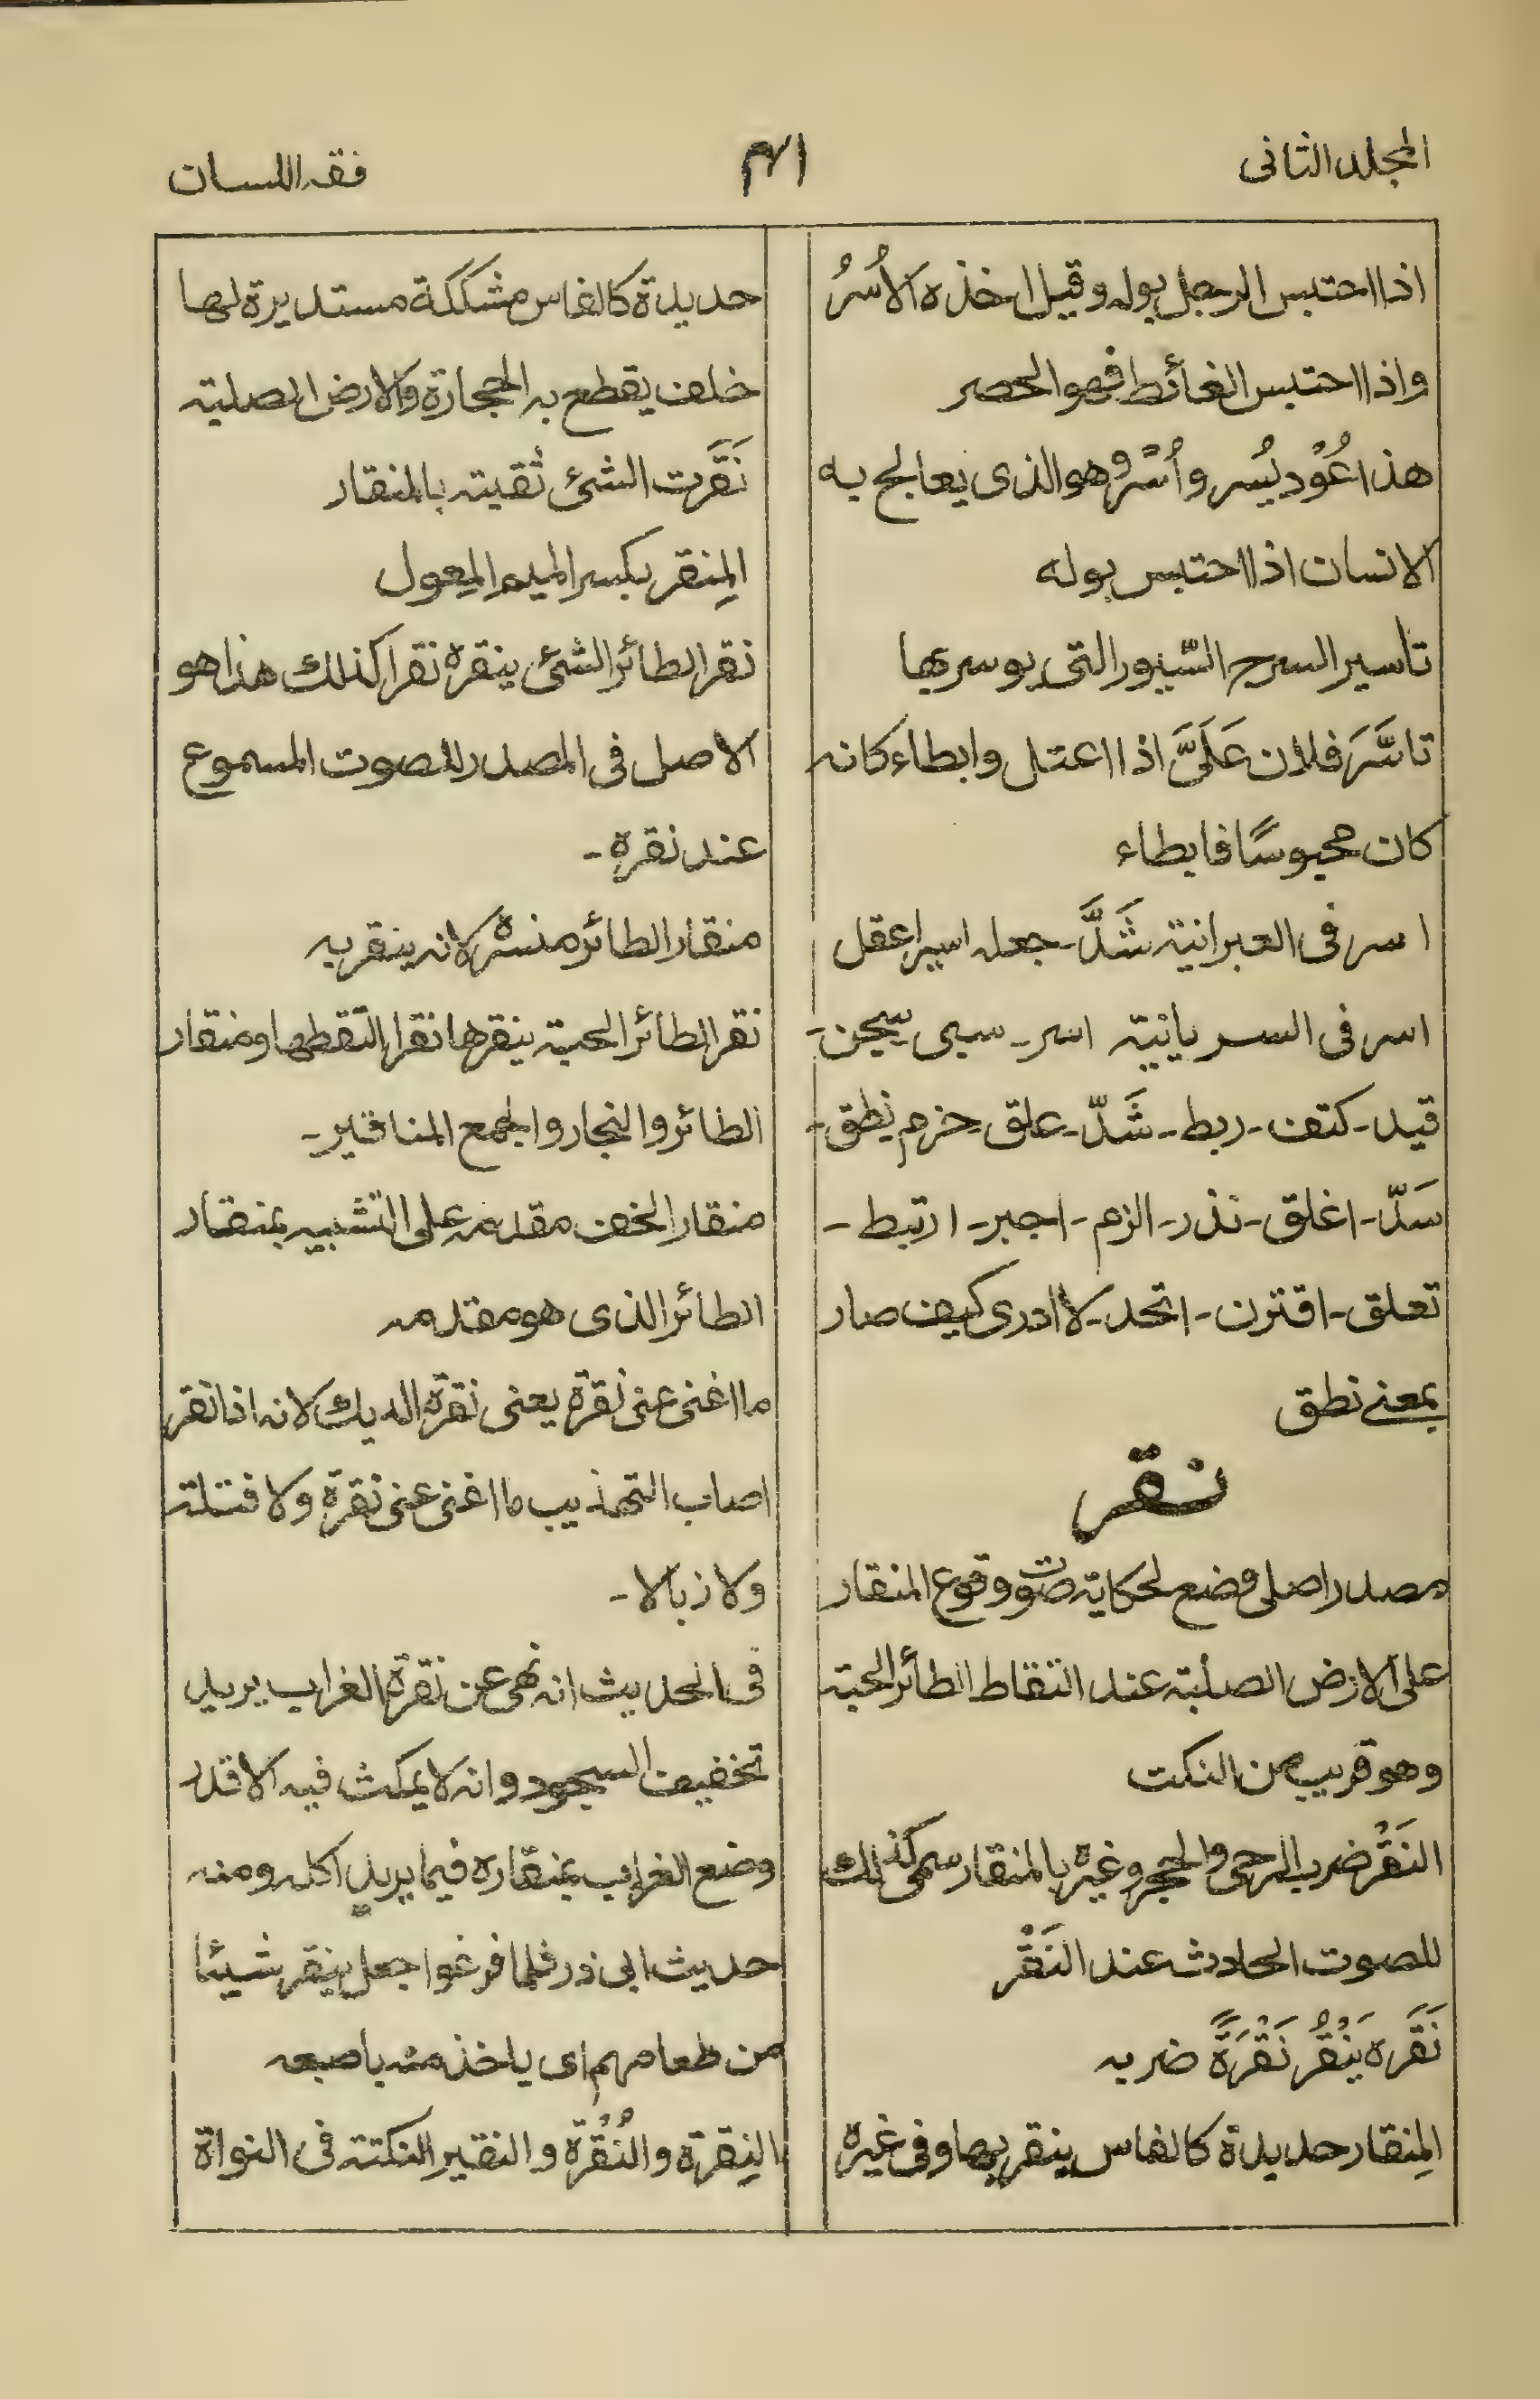 المجلد الثانى
فقہ اللسان
اذا احتبس الرجل بوله وقيل اخذه الاُسْرُ
واذا احتبس الغائط فهو الحصر
هذا عُوْد يُسر واُسْرٌ وهو الذى يعالج به
الانسان اذا احتبس بوله
تاسير السرج السّيور التى يوسر بها
تاسَّرَ فلان عَلَىَّ اذا اعتل وابطاء كانه
كان محبوسًا فابطاء
اسر فى العبرانية شَدَّ - جعله اسيرا عقل
اسر فى السريانية اسر - سبى سجن -
قيد - كتف - ربط - شَدّ - علق - حزم نطق -
سَدّ - اغلق - نذر - الزم - اجبر - ارتبط -
تعلق - اقترن - اتحد - لا ادرى كيف صار
بمعنے نطق
نقر
مصدر اصلى وضع لحكاية صوت وقوع المنقار
على الارض الصلبة عند التقاط الطائر الحبة
وهو قريب من النكت
النَقْر ضرب الرحى والحجر وغيره بالمنقار سمى كذلك
للصوت الحادث عند النَقْر
نَقَرَه يَنْقُرُ نَقْرَةً ضربه
المِنقار حديدة كالفاس ينقر بها وفى غيره
حديدة كالفاس مشككة مستديرة لها
خلف يقطع به الحجارة والارض الصلبة
نَقَّرت الشئ ثقبته بالمنقار
المِنقر بكسر الميم المِعول
نقر الطائر الشئ ينقره نقرا كذلك هذا هو
الاصل فى المصدر للصوت المسموع
عند نقره -
منقار الطائر منسره لانه ينقر به
نقر الطائر الحبة ينقرها نقرا التقطها ومنقار
الطائر والنجار والجمع المناقير -
منقار الخف مقدمه على التشبيه بمنقار
الطائر الذى هو مقدمه
ما اغنى عنى نقرة يعنى نقرة الديك لانه اذا نقر
اصاب التهذيب ما اغنى عنى نقرة ولا فتلة
ولا زبالا -
فى الحديث انه نهى عن نقرة الغراب يريد
تخفيف السجود وانه لا يمكث فيه الا قدر
وضع الغراب بمنقاره فيما يريد اكله ومنه
حديث ابى ذر فلما فرغوا جعل ينقر شيئا
من طعامهم اى ياخذ منه باصبعه
النِقرة والنُقْرة والنقير النكتة فى النواة